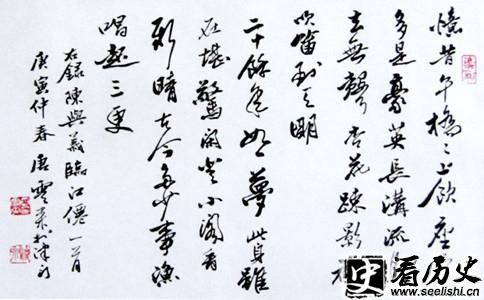 憶昔午橋々上飲座
多是豪英長溝流月
去無聲杏花疎影裡
吹笛到天明
二十餘年如一夢此身雖
在堪驚閒登小閣看
新晴古今多少事漁
唱起三更
右錄陳與義臨江僊一首
庚寅仲春唐雲來於津門
史看历史
www.seelishi.cn